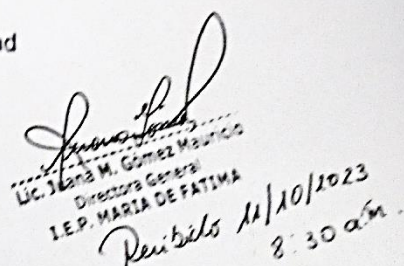 Lic. Juana M. Gómez Mauricio
Directora General
I.E.P. MARIA DE FATIMA
Recibido 11/10/2023
8:30 am.